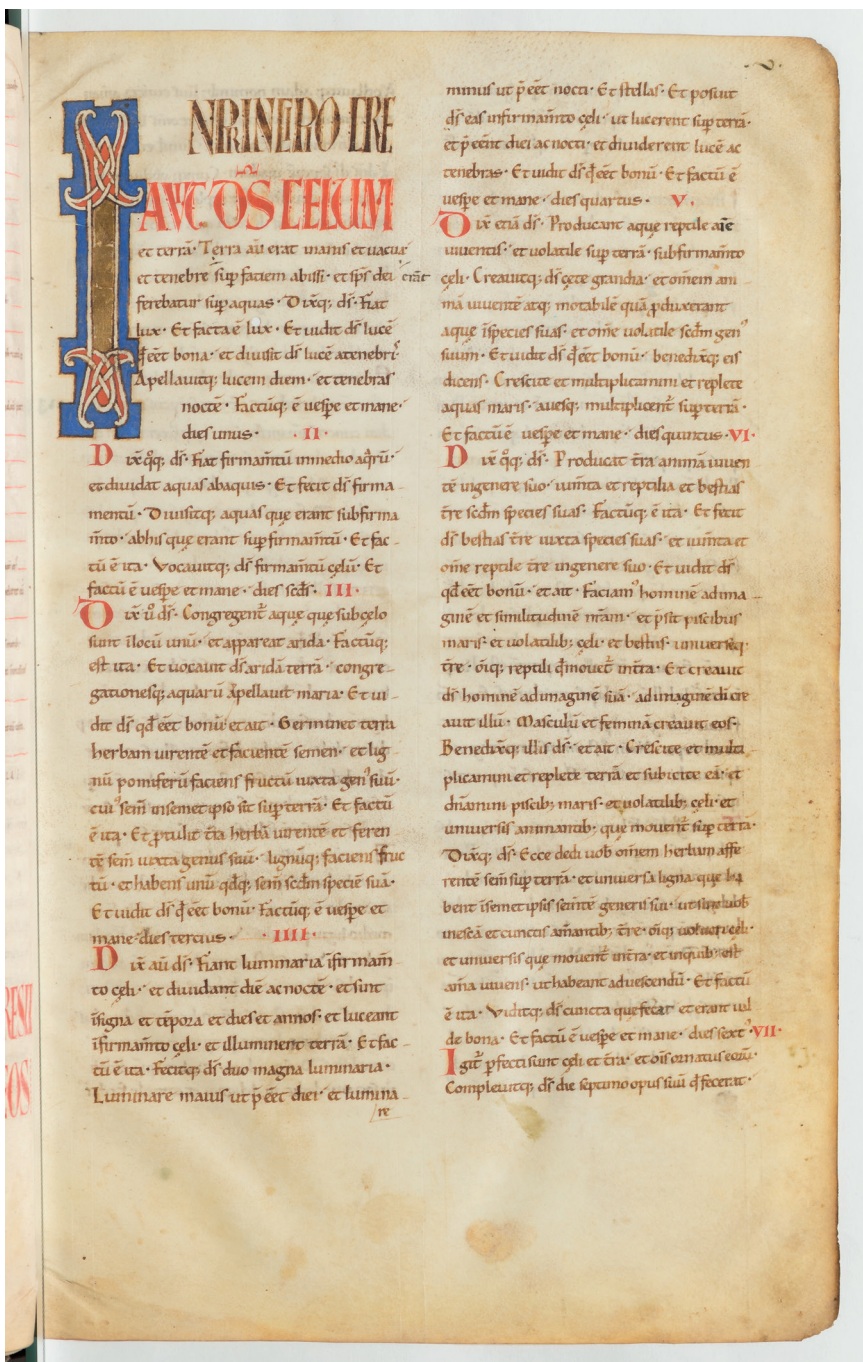 IN PRINCIPIO CRE
AVIT DS̄ CELUM
et terrā· Terra aū erat inanis et vacua·
et tenebre sup̄ faciem abissi· et sp̄s dei erāt
ferebatur sup̄ aquas· Dixq; ds̄· Fiat
lux· Et facta ē lux· Et uidit ds̄ lucē
q̄ eēt bona· et diuisit ds̄ lucē a tenebris·
Apellavitq; lucem diem· et tenebras
noctē· Factūq; ē uesp̄e et mane·
dies unus· ·II·
Dix̄ q̄q; ds̄· Fiat firmam̄tū in medio aq̄rū·
et diuidat aquas ab aquis· Et fecit ds̄ firma-
mentū· Diuisitq; aquas quę erant sub firma
m̄to· ab his quę erant sup̄ firmam̄tū· Et fac-
tū ē ita· Vocauitq; ds̄ firmam̄tū cęlū· Et
factū ē uesp̄e et mane· dies scd̄s· III·
Dix̄ ů ds̄· Congregent̄ aque que sub cęlo
sunt ī locū unū· et appareat arida· Factūq;
est ita· Et uocauit ds̄ aridā terrā· congre-
gationesq; aquarū apellauit maria· Et ui-
dit ds̄ qd̄ eēt bonū· et ait· Germinet terra
herbam uirentē et facientē semen· et lig
nū pomiferū faciens fructū iuxta gen᾿ suū·
cui᾿ sem̄ in semetipso sit sup̄ terrā· Et factū
ē ita· Et ꝓtulit t̄ra herbā uirentē et feren
tē sem̄ iuxta genus suū· lignūq; faciens fruc
tū· et habens unū qd̄q; sem̄ scd̄m speciē suā·
Et uidit ds̄ q̄ eēt bonū· Factūq; ē uesp̄e et
mane dies tercius· ·IIII·
Dix̄ aū ds̄· Fiant luminaria ī firmam̄
to cęli· et diuidant diē ac noctē· et sint
ī signa et tēpora et dies et annos· et luceant
ī firmam̄to cęli· et illuminent terrā· Et fac-
tū ē ita· Fecitq; ds̄ duo magna luminaria·
Luminare maius ut p̄eēt diei· et lumina-
re
minus ut p̄eēt nocti· Et stellas· Et posuit
ds̄ eas in firmam̄to cęli· ut lucerent sup̄ terrā·
et p̄eēnt diei ac nocti· et diuiderent lucē ac
tenebras· Et uidit ds̄ q̄ eēt bonū· Et factū ē
uesp̄e et mane· dies quartus· V·
Dix̄ etiā ds̄· Producant aque reptile aīe
uiuentis· et uolatile sup̄ terrā· sub firmam̄to
cęli· Creauitq; ds̄ cęte grandia· et om̄em ani
mā uiuentē atq; motabilē quā ꝓduxerant
aque ī species suas· et om̄e uolatile scd̄m gen᾿
suum· Et uidit ds̄ q̄ eēt bonū· benedixq; eis
dicens· Crescite et multiplicamini et replete
aquas maris· auesq; multiplicent̄ sup̄ terrā·
Et factū ē uesp̄e et mane· dies quintus· VI·
Dix̄ q̄q; ds̄· Producat t̄ra animā uiuen
tē in genere suo· ium̄ta et reptilia et bestias
t̄re scd̄m species suas· Factūq; ē ita· Et fecit
ds̄ bestias t̄re iuxta species suas· et ium̄ta et
om̄e reptile t̄re in genere suo· Et uidit ds̄
qd̄ eēt bonū· et ait· Faciam᾿ hominē ad ima-
ginē et similitudinē nr̄am· et p̄sit piscibus
maris· et uolatilib; cęli· et bestiis uniuerseq;
t̄re· oīq; reptili q̄ mouet̄ in t̄ra· Et creauit
ds̄ hominē ad imaginē suā· ad imaginē di cre
auit illū· Masculū et feminā creauit eos·
Benedixq; illis ds̄· et ait· Crescite et multi-
plicamini et replete terrā et subicite eā· et
dn̄amini piscib; maris· et uolatilib; cęli· et
uniuersis animantib; que mouent̄ sup̄ terra·
Dixq; ds̄· Ecce dedi uob̄ om̄em herbam affe
rentē sem̄ sup̄ terrā· et uniuersa ligna que ha
bent ī semetipsis sem̄tē generis sui· ut sint uob̄
in escā et cunctis am̄antib; t̄re· oīq; uolucri cęli·
et uniuersis que mouent̄ in t̄ra· et in quib; est
am̄a uiuens· ut habeant ad uescendū· Et factū
ē ita· Viditq; ds̄ cuncta que fecat· et erant ual
de bona· Et factū ē uesp̄e et mane· dies sext᾿· VII·
Igit̄ ꝑfecti sunt cęli et t̄ra· et oīs ornatus eorū·
Complevitq; ds̄ die septimo opus suū q̄ fecerat·